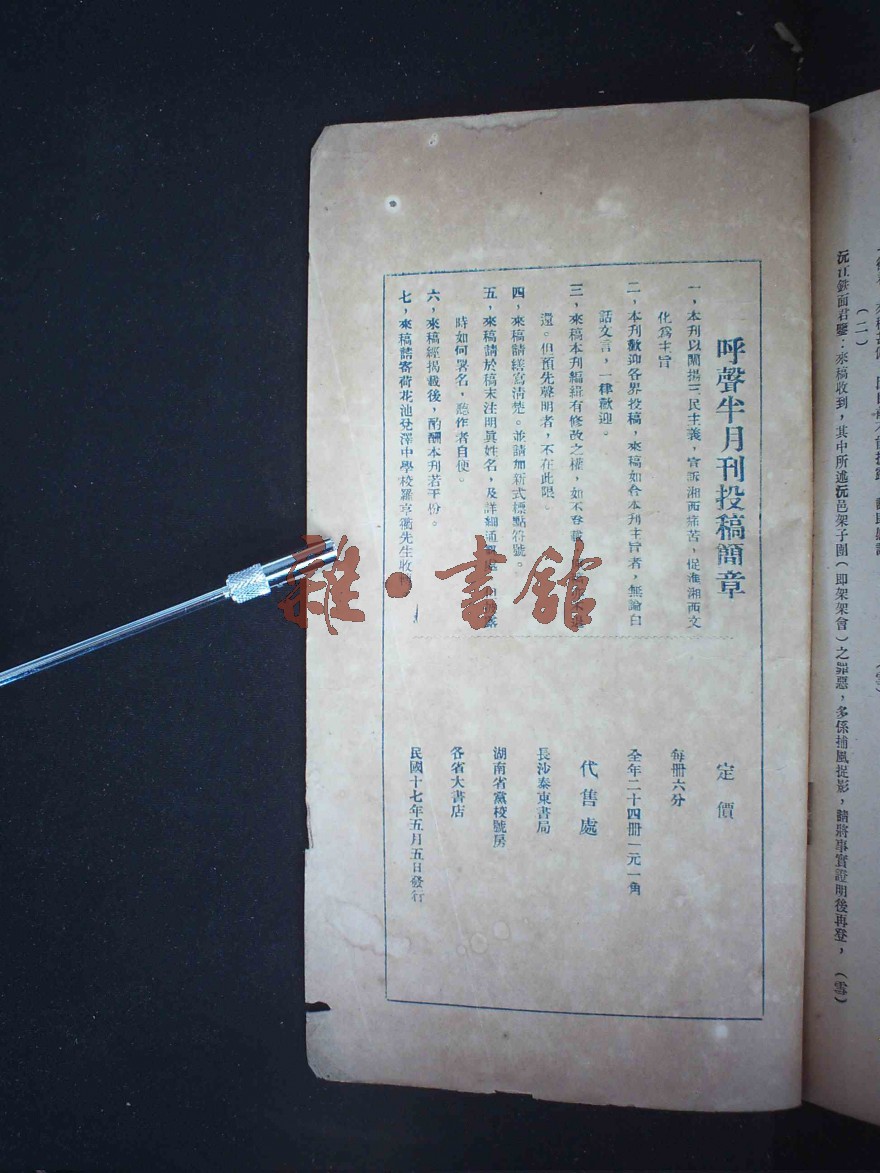 呼聲半月刊投稿簡章
一，本刊以闡揚三民主義，宣訴湘西痛苦，促進湘西文
化爲主旨
二，本刊歡迎各界投稿，來稿如合本刊主旨者，無論白
話文言，一律歡迎。
三，來稿本刊編緝有修改之權，如不登載
還。但預先聲明者，不在此限。
四，來稿請繕寫淸楚。並請加新式標點符號。
五，來稿請於稿末注明眞姓名，及詳細通
時如何署名，聽作者自便。
六，來稿經揭載後，酌酬本刊若干份。
七，來稿請寄荷花池兌澤中學校羅享衢先生收
定價
每冊六分
全年二十四冊一元一角
代售處
長沙泰東書局
湖南省黨校號房
各省大書店
民國十七年五月五日發行
（二）
沅江鉄面君鑒：來稿收到，其中所述沅邑架子團（即架架會）之罪惡，多係捕風捉影，請將事實證明後再登，（雲）
雜·書館